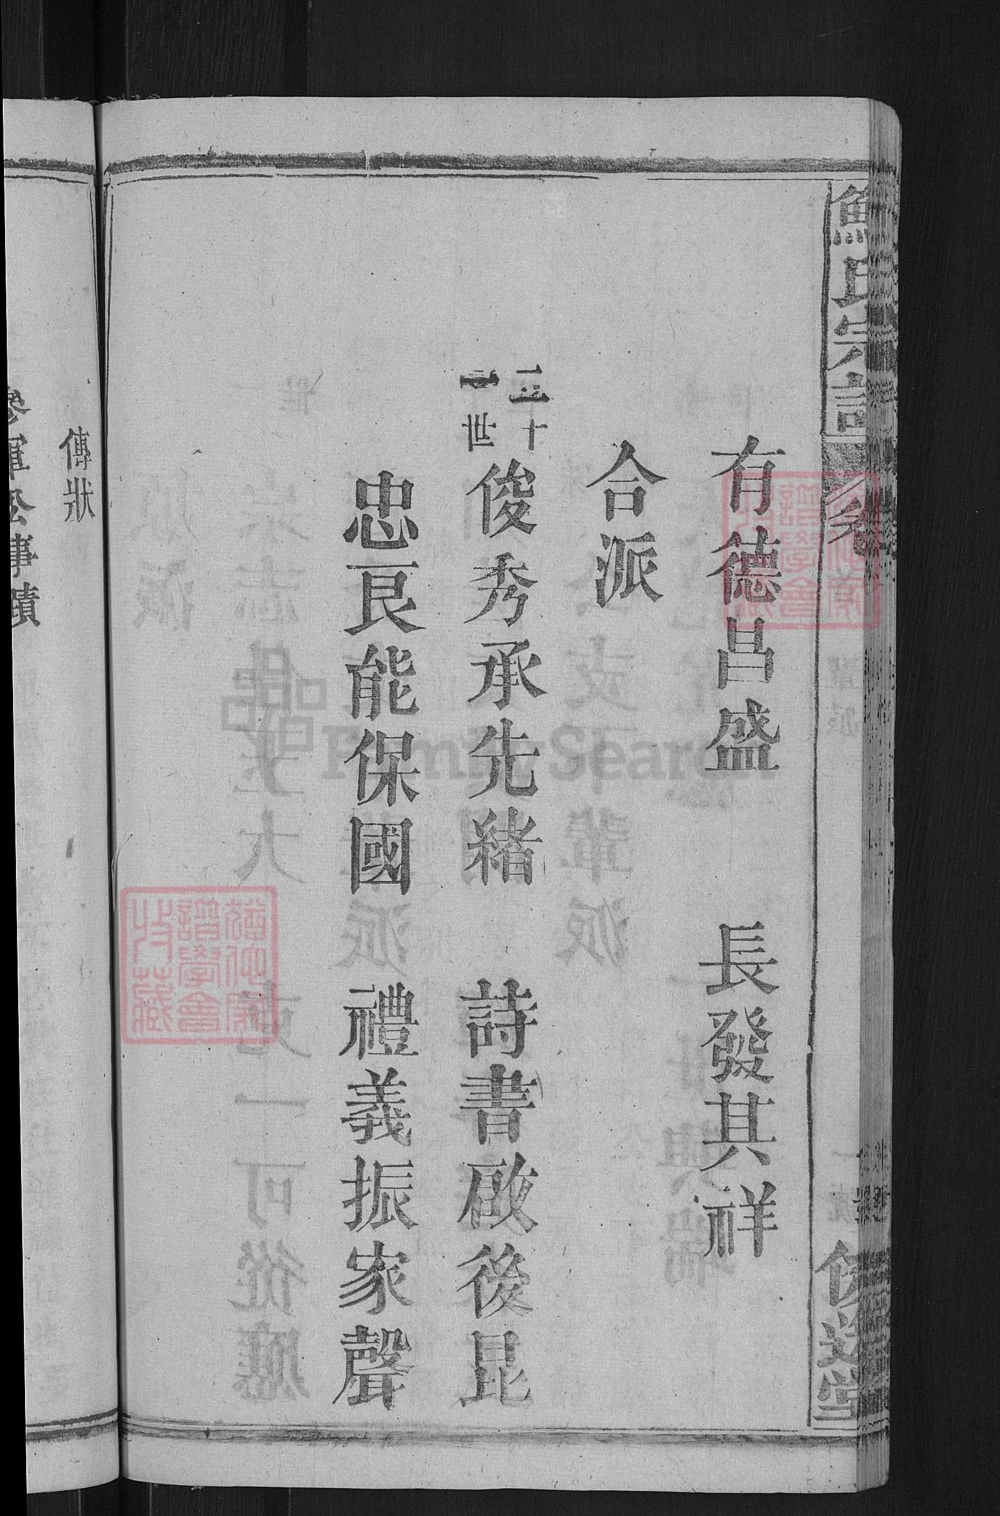 鮑氏宗譜
有德昌盛 長發其祥
合派
二十一世 俊秀承先緒 詩書啟後昆
忠良能保國 禮義振家聲
傳狀
參軍公事蹟
譜學會
FamilySearch
譜學會